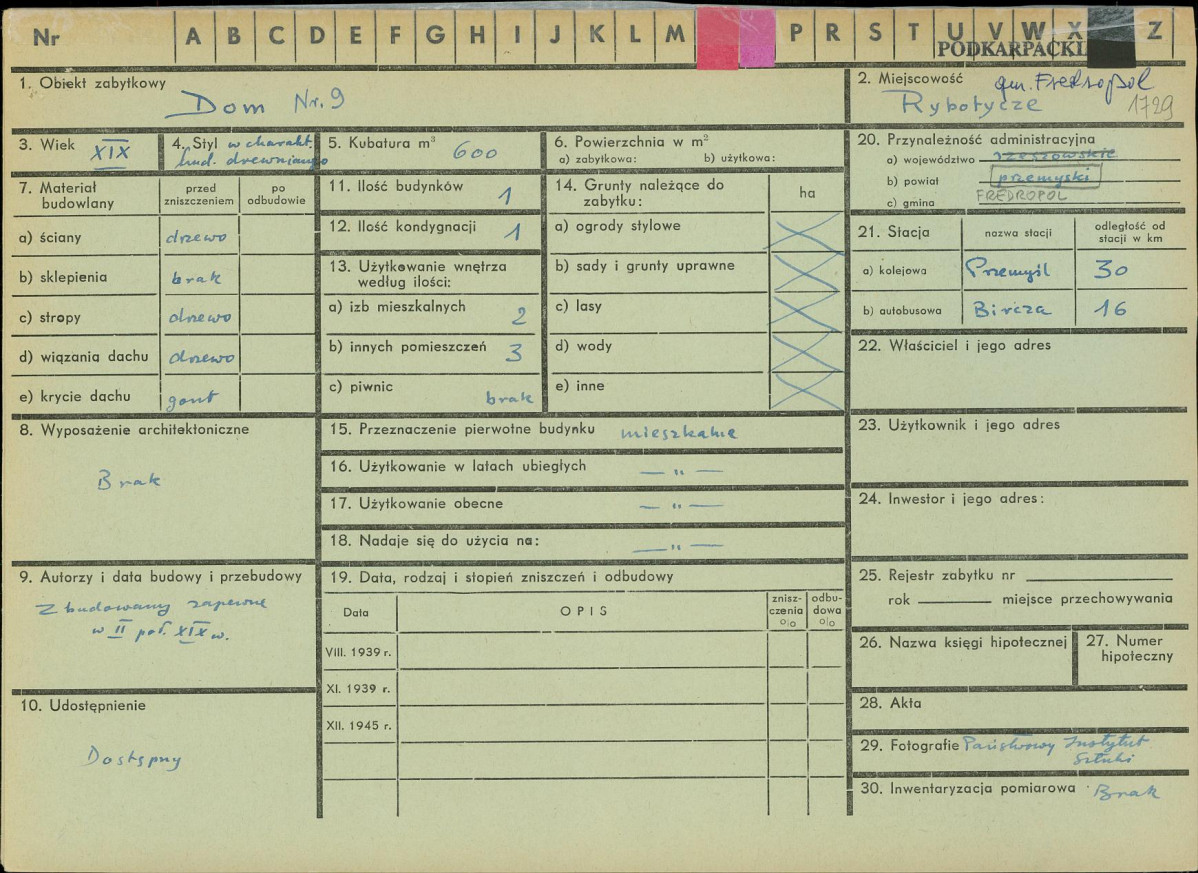 Nr A B C D E F G H I J K L M P R S T U V W X Z
PODKARPACKI
1. Obiekt zabytkowy
Dom Nr. 9
2. Miejscowość gm. Fredropol
Rybotycze 1729
3. Wiek XIX
4. Styl w charakt.
bud. drewnianego
5. Kubatura m³ 600
6. Powierzchnia w m²
a) zabytkowa: b) użytkowa:
7. Materiał budowlany
przed zniszczeniem
po odbudowie
a) ściany drzewo
b) sklepienia brak
c) stropy drzewo
d) wiązania dachu drzewo
e) krycie dachu gont
8. Wyposażenie architektoniczne
Brak
9. Autorzy i data budowy i przebudowy
Zbudowany zapewne
w II poł. XIX w.
10. Udostępnienie
Dostępny
11. Ilość budynków 1
12. Ilość kondygnacji 1
13. Użytkowanie wnętrza
według ilości:
a) izb mieszkalnych 2
b) innych pomieszczeń 3
c) piwnic brak
14. Grunty należące do
zabytku:
ha
a) ogrody stylowe
b) sady i grunty uprawne
c) lasy
d) wody
e) inne
15. Przeznaczenie pierwotne budynku mieszkanie
16. Użytkowanie w latach ubiegłych — „ —
17. Użytkowanie obecne — „ —
18. Nadaje się do użycia na: — „ —
19. Data, rodzaj i stopień zniszczeń i odbudowy
Data
OPIS
znisz-
czenia
%
odbu-
dowa
%
VIII. 1939 r.
XI. 1939 r.
XII. 1945 r.
20. Przynależność administracyjna
a) województwo rzeszowskie
b) powiat przemyski
c) gmina FREDROPOL
21. Stacja
nazwa stacji
odległość od
stacji w km
a) kolejowa Przemyśl 30
b) autobusowa Bircza 16
22. Właściciel i jego adres
23. Użytkownik i jego adres
24. Inwestor i jego adres:
25. Rejestr zabytku nr
rok miejsce przechowywania
26. Nazwa księgi hipotecznej
27. Numer
hipoteczny
28. Akta
29. Fotografie Państwowy Instytut
Sztuki
30. Inwentaryzacja pomiarowa Brak